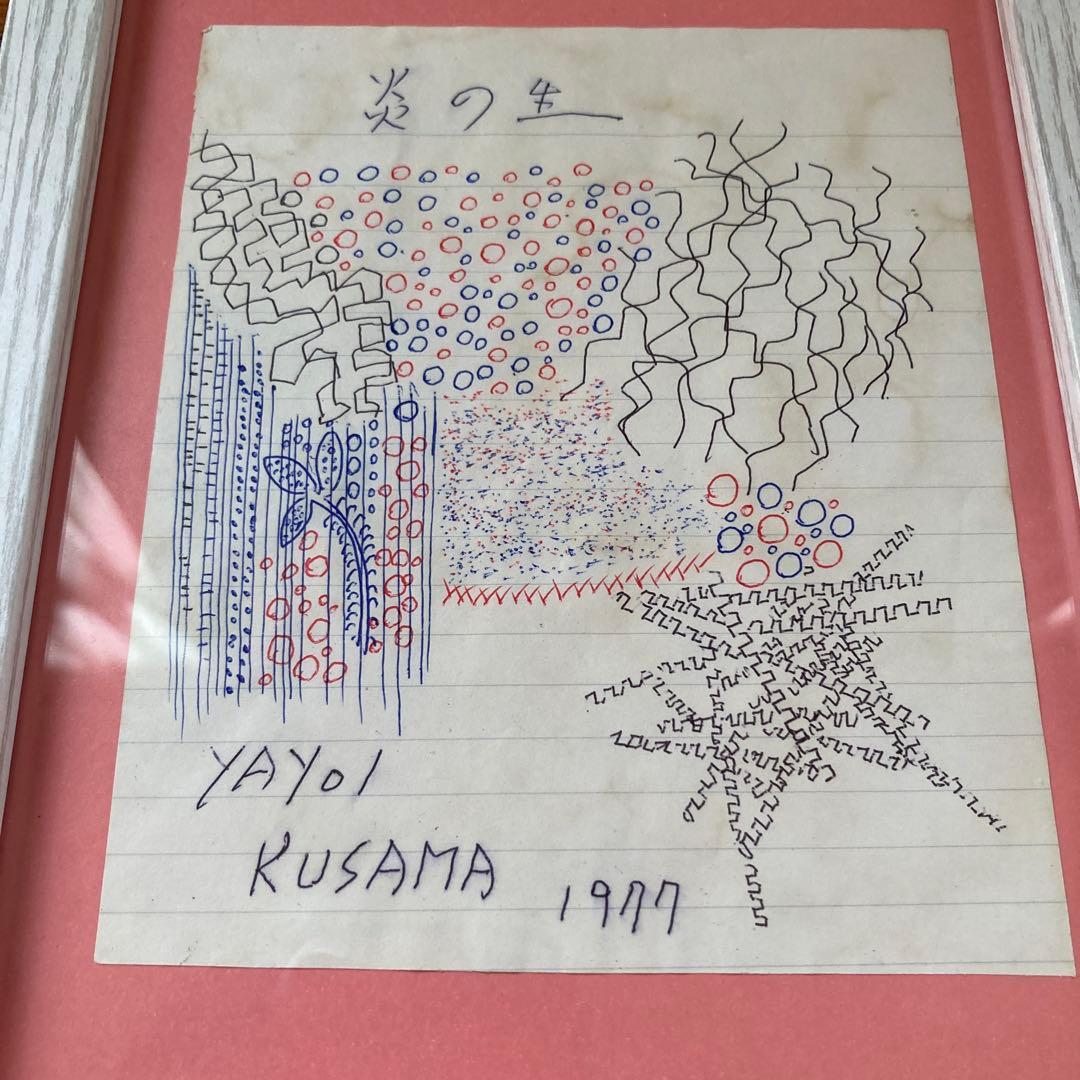 炎の生
YAYOI
KUSAMA 1977